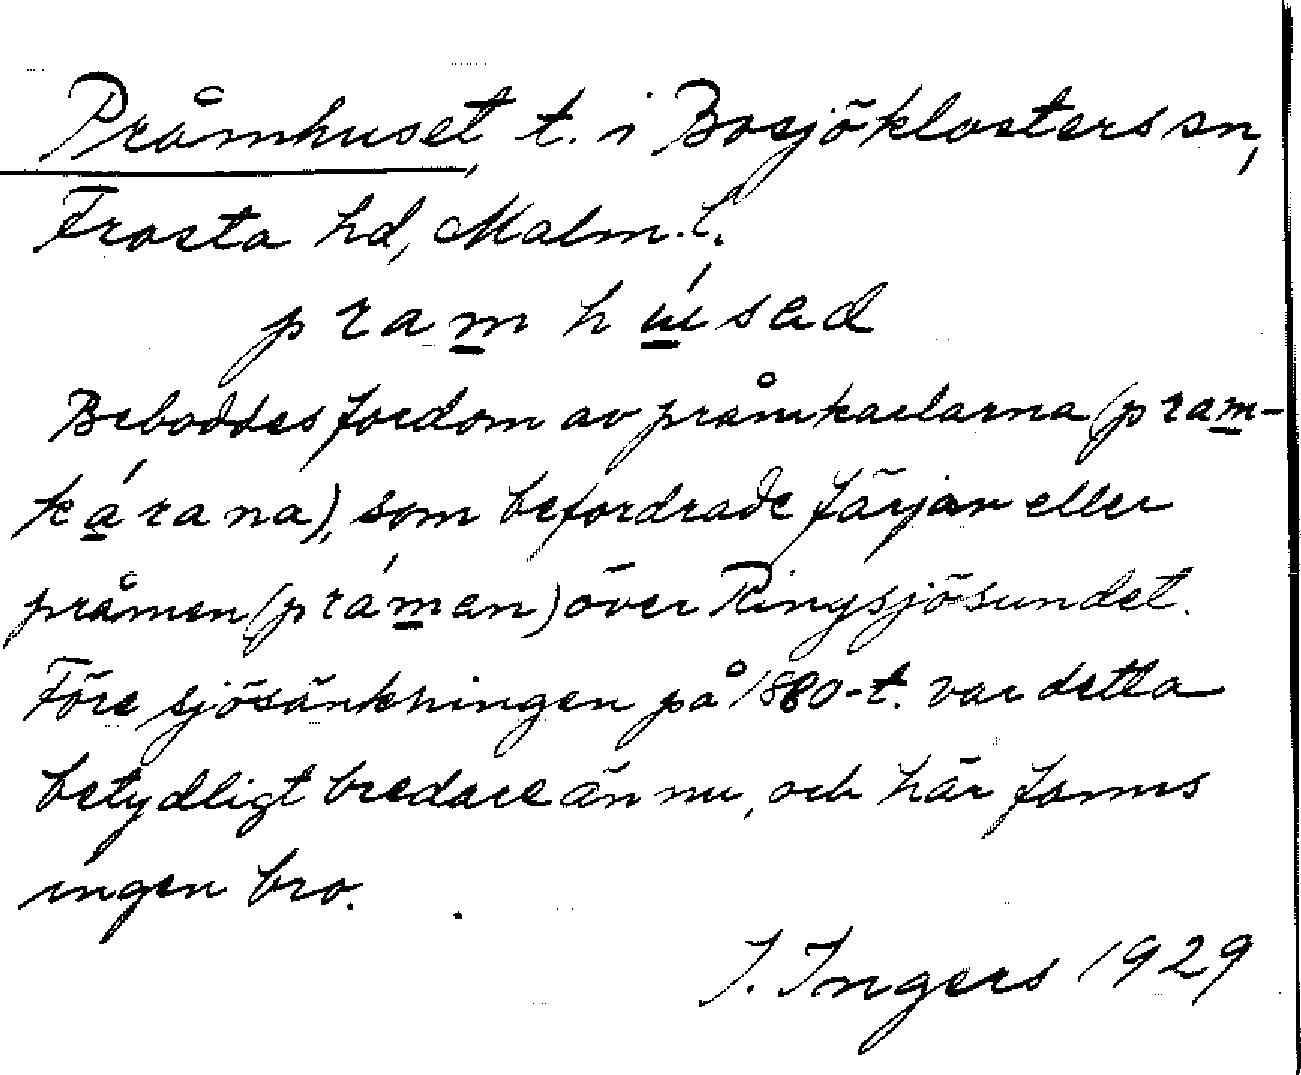 Pråmhuset, t. i Bosjöklosters sn,
Frosta hd, Malm.l.
pram húsad
Beboddes fordom av pråmkarlarna (pram-
kárana), som befordrade färjan eller
pråmen (práman) över Ringsjösundet.
Före sjösänkningen på 1880-t. var detta
betydligt bredare än nu, och här fanns
ingen bro.
I. Ingers 1929